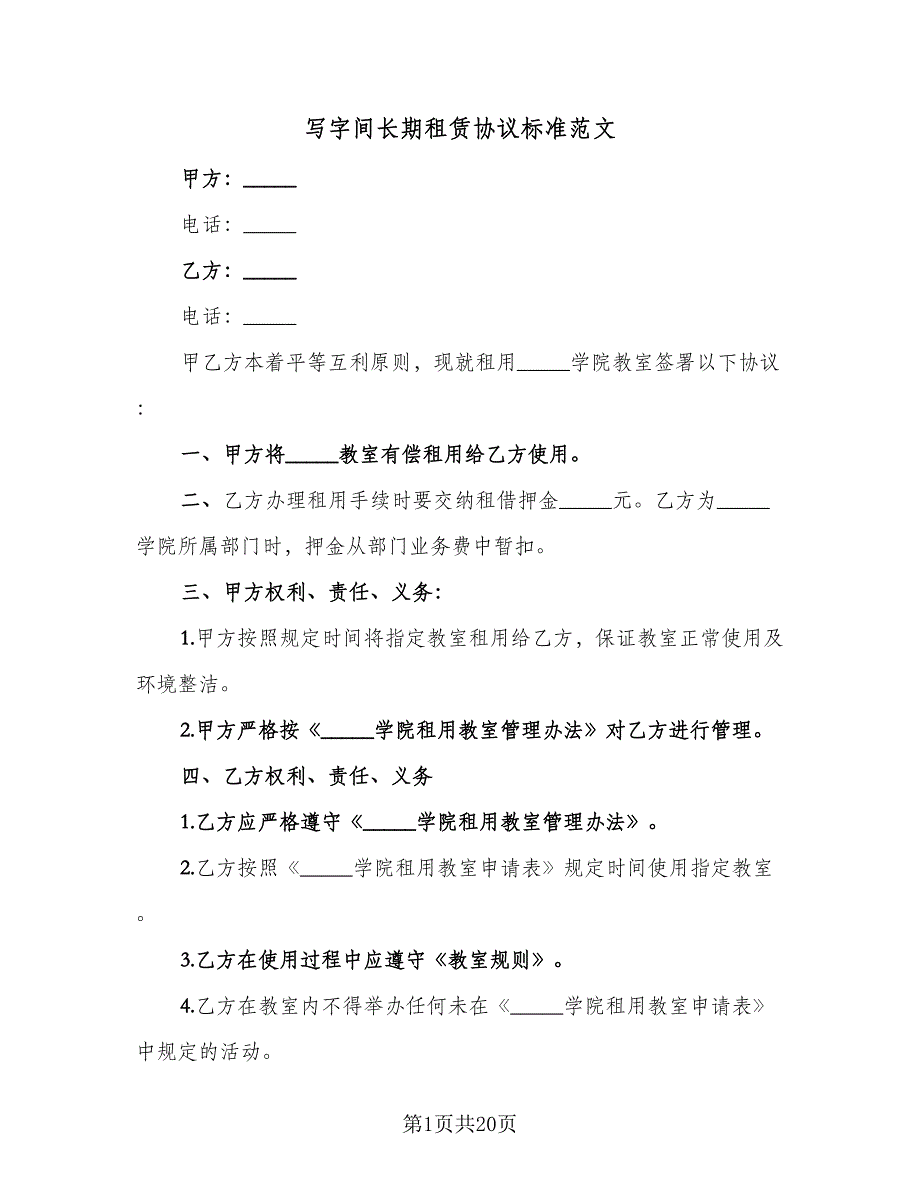 写字间长期租赁协议标准范文
甲方：_____
电话：_____
乙方：_____
电话：_____
甲乙方本着平等互利原则，现就租用_____学院教室签署以下协议
：
一、甲方将_____教室有偿租用给乙方使用。
二、乙方办理租用手续时要交纳租借押金_____元。乙方为_____
学院所属部门时，押金从部门业务费中暂扣。
三、甲方权利、责任、义务：
1.甲方按照规定时间将指定教室租用给乙方，保证教室正常使用及
环境整洁。
2.甲方严格按《_____学院租用教室管理办法》对乙方进行管理。
四、乙方权利、责任、义务
1.乙方应严格遵守《_____学院租用教室管理办法》。
2.乙方按照《_____学院租用教室申请表》规定时间使用指定教室
。
3.乙方在使用过程中应遵守《教室规则》。
4.乙方在教室内不得举办任何未在《_____学院租用教室申请表》
中规定的活动。
第1页共20页